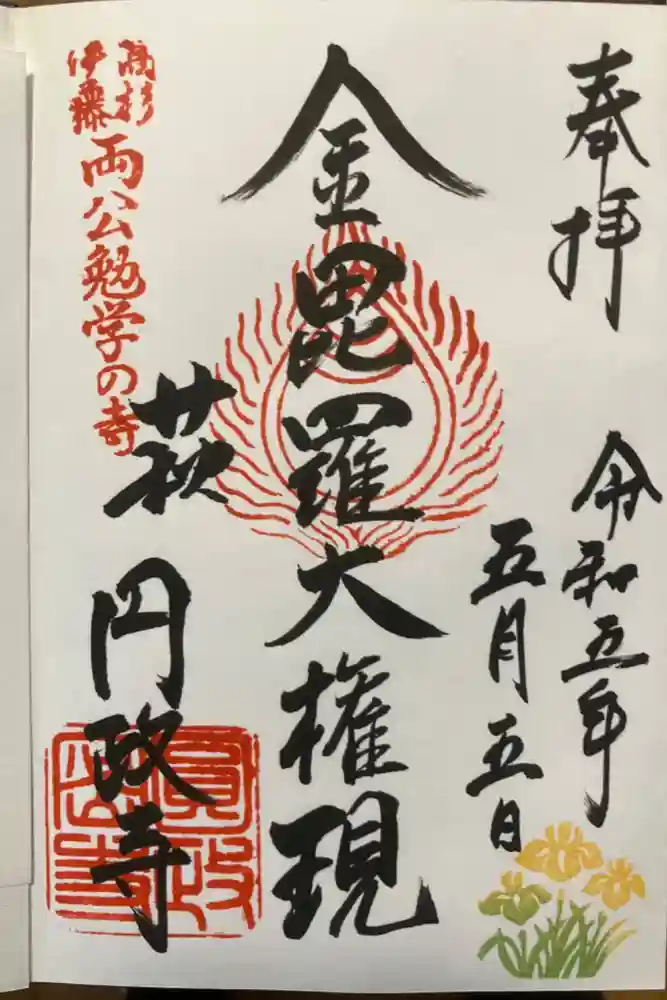 奉拝
令和五年
五月五日
金毘羅大権現
萩 円政寺
高杉
伊藤
両公勉学の寺